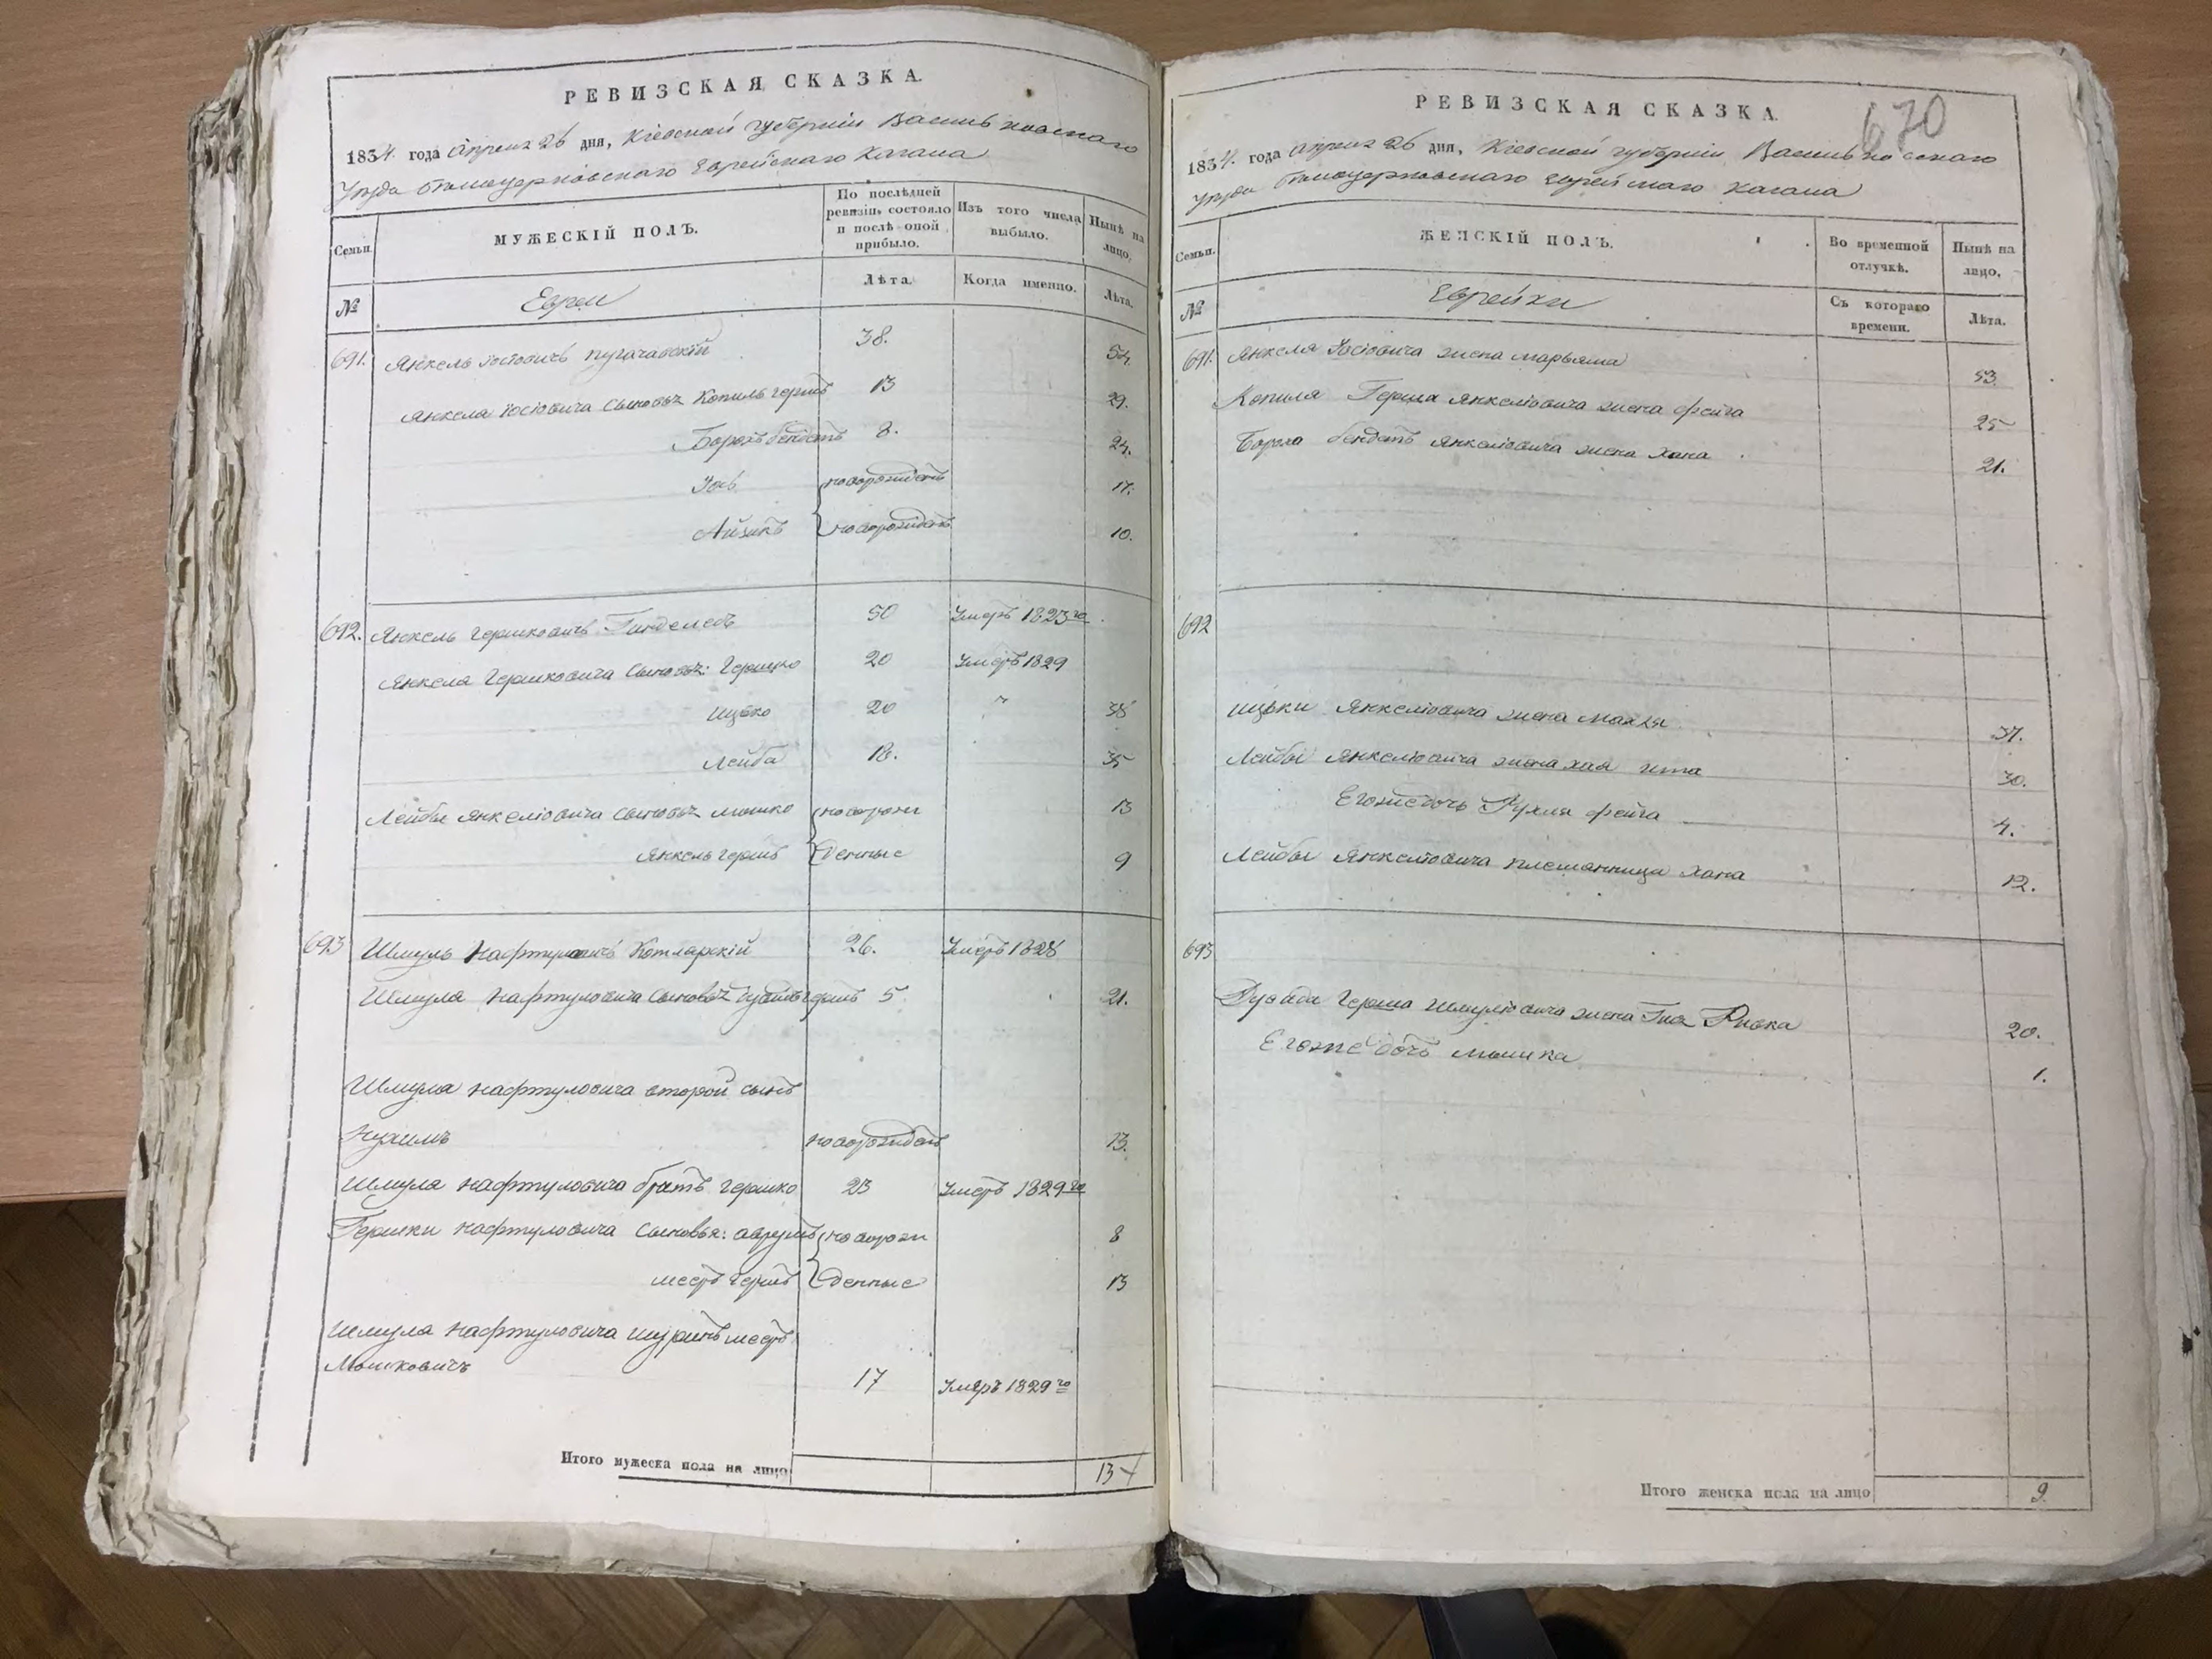 РЕВИЗСКАЯ СКАЗКА.
1834 года Апреля 26 дня, Кіевской губерніи Васильковскаго
Уезда Белоцерковскаго Еврейскаго Кагала
Семьи.
МУЖЕСКІЙ ПОЛЪ.
По послѣдней ревизіи состояло и послѣ оной прибыло.
Изъ того числа выбыло.
Нынѣ на лицо.
№
Евреи
Лѣта.
Когда именно.
Лѣта.
691. Янкель Іосіовичъ 38. 54.
Янкеля Іосіовича сыновья Копиль Гершъ 13 29.
Борохъ бендетъ 8. 24.
Іось новорожденъ 17.
Айзикъ новорожденъ 10.
692. Янкель Гершковичъ 50 Умеръ 1823го
Янкеля Гершковича сыновья: Гершко 20 Умеръ 1829
Ицько 20 " 38
Лейба 18. 35
Лейбы Янкеліовича сыновья Мошко новорож 13
Янкель Гершъ денные 9
693 Шмуль Нафтуловичъ Котлярскій 26. Умеръ 1828
Шмуля Нафтуловича сыновья Гершъ 5 21.
Шмуля Нафтуловича второй сынъ
Нухимъ новорожденъ 13.
Шмуля Нафтуловича братъ Гершко 23 Умеръ 1829го
Гершки Нафтуловича сыновья: Аврумъ новорож 8
Мееръ Гершъ денные 13
Шмуля Нафтуловича шуринъ Мееръ
Мошковичъ 17 Умеръ 1829го
Итого мужеска пола на лицо 13
РЕВИЗСКАЯ СКАЗКА.
670
1834 года Апреля 26 дня, Кіевской губерніи Васильковскаго
Уезда Белоцерковскаго Еврейскаго Кагала
Семьи.
ЖЕНСКІЙ ПОЛЪ.
Во временной отлучкѣ.
Нынѣ на лицо.
№
Еврейки
Съ котораго времени.
Лѣта.
691. Янкеля Іосіовича жена Марьяма 53.
Копиля Герша Янкеліовича жена Фейга 25
Бороха бендетъ Янкеліовича жена Хана 21.
692
Ицьки Янкеліовича жена Малка 37.
Лейбы Янкеліовича жена Хая Ита 30.
Его же дочь Рухля Фейга 4.
Лейбы Янкеліовича племянница Хана 12.
693
Герша Шмуліовича жена Ривка 20.
Его же дочь 1.
Итого женска пола на лицо 9.